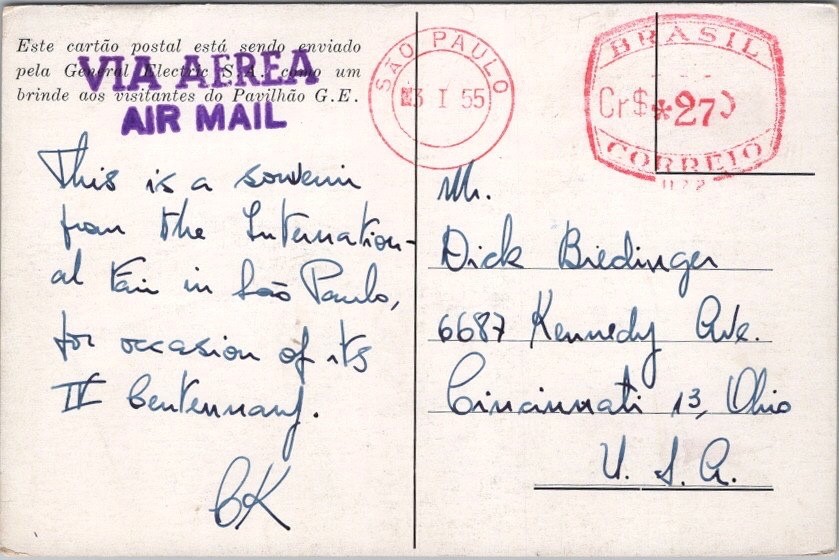 Este cartão postal está sendo enviado
pela General Electric S.A. como um
brinde aos visitantes do Pavilhão G.E.
VIA AEREA
AIR MAIL
This is a souvenir
from the Internation-
al Fair in São Paulo,
for occasion of its
IV Centennary.
CK
SÃO PAULO
3 I 55
BRASIL
Cr$ *27
CORREIO
Mr.
Dick Biedinger
6687 Kennedy Ave.
Cincinnati 13, Ohio
U.S.A.